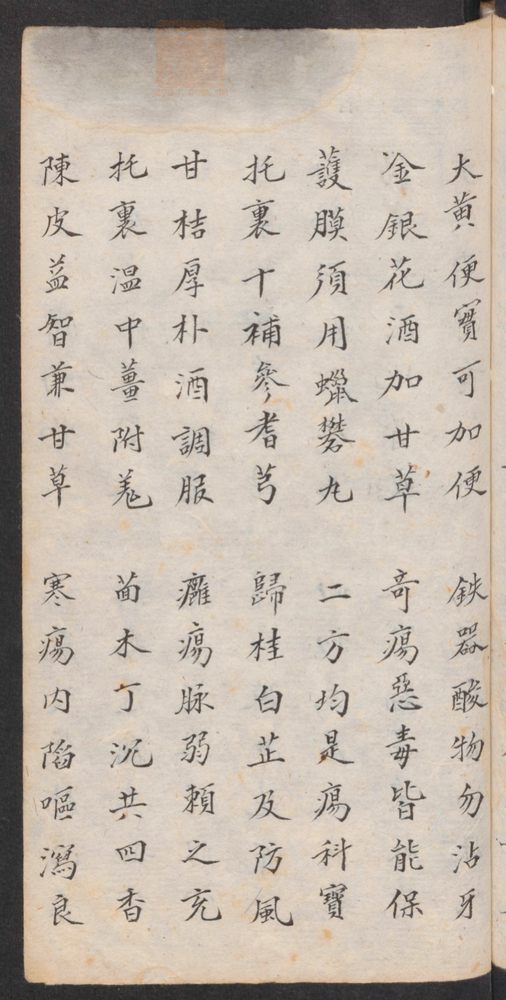 大黄便寳可加便 鉄器酸物勿沾牙
金銀花酒加甘草 奇瘍惡毒皆能保
護膜須用蠟礬丸 二方均是瘍科寳
托裏十補參耆芎 歸桂白芷及防風
甘桔厚朴酒調服 癰瘍脉弱頼之充
托裏温中薑附羗 茴木丁沉共四香
陳皮益智兼甘草 寒瘍内陷嘔瀉良